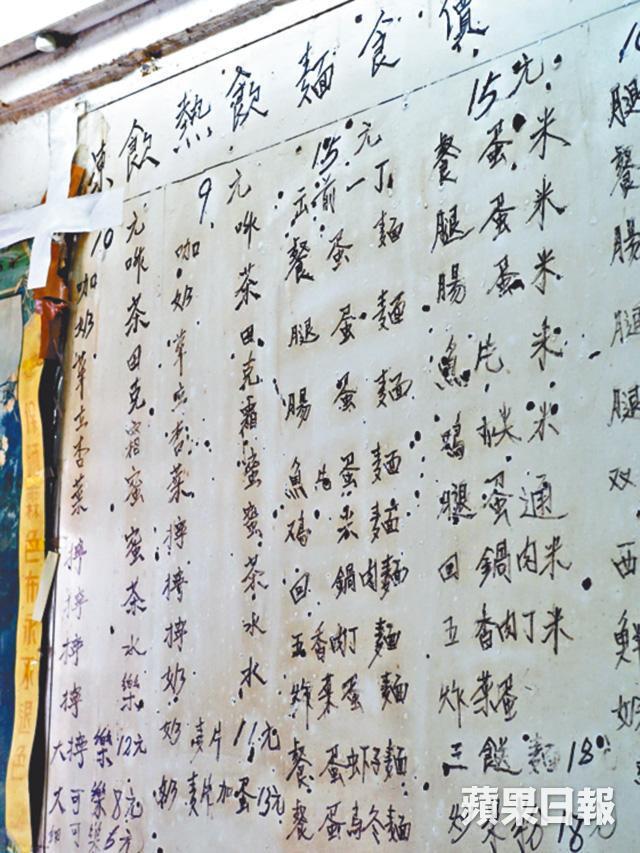 凍飲熱飲麵食價
10元
咖啡
奶茶
華田
克
杏霜
菜蜜
檸蜜
檸茶
檸水
檸樂
大檸樂12元
大可樂8元
細可樂5元
9元
咖啡
奶茶
華田
克
杏霜
菜蜜
檸蜜
檸茶
檸水
奶水
奶麥片11元
奶麥片加蛋13元
15元
出前一丁
餐蛋麵
腿蛋麵
腸蛋麵
魚片蛋麵
麵
回鍋肉麵
五香肉丁麵
炸菜蛋麵
餐蛋蝦子麵
餐蛋烏冬麵
15元
餐蛋米
腿蛋米
腸蛋米
魚片米
米
腿蛋通
回鍋肉米
五香肉丁米
炸菜蛋
三餸麵18元
炒 18元
腿
餐
腸
腿
腿
双
西
鮮
奶
色布永不退色
蘋果日報